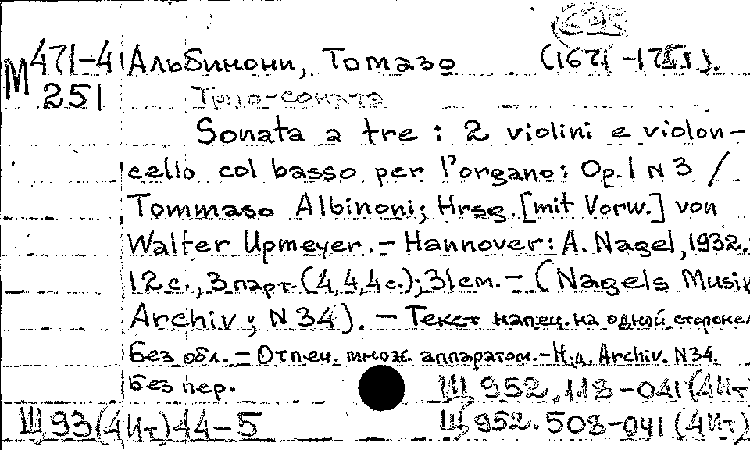 М 471-4 Альбинони, Томазо (1671-1751).
251 Трио-соната
Sonata a tre : 2 violini e violon-
cello col basso per l'organo: Op. 1 N 3 /
Tommaso Albinoni; Hrsg. [mit Vorw.] von
Walter Upmeyer. - Hannover: A. Nagel, 1932.
12 с., 3 парт. (4, 4, 4 с.); 31 см. - (Nagels Musik
Archiv; N 34). - Текст напеч. на одной стороне
Без обл. - Отпеч. множ. аппаратом. - Н.д. Archiv. N34.
Без пер. Щ 952.118-041(4Ит)
Щ 93(4Ит)44-5 Щ 952.508-041(4Ит)